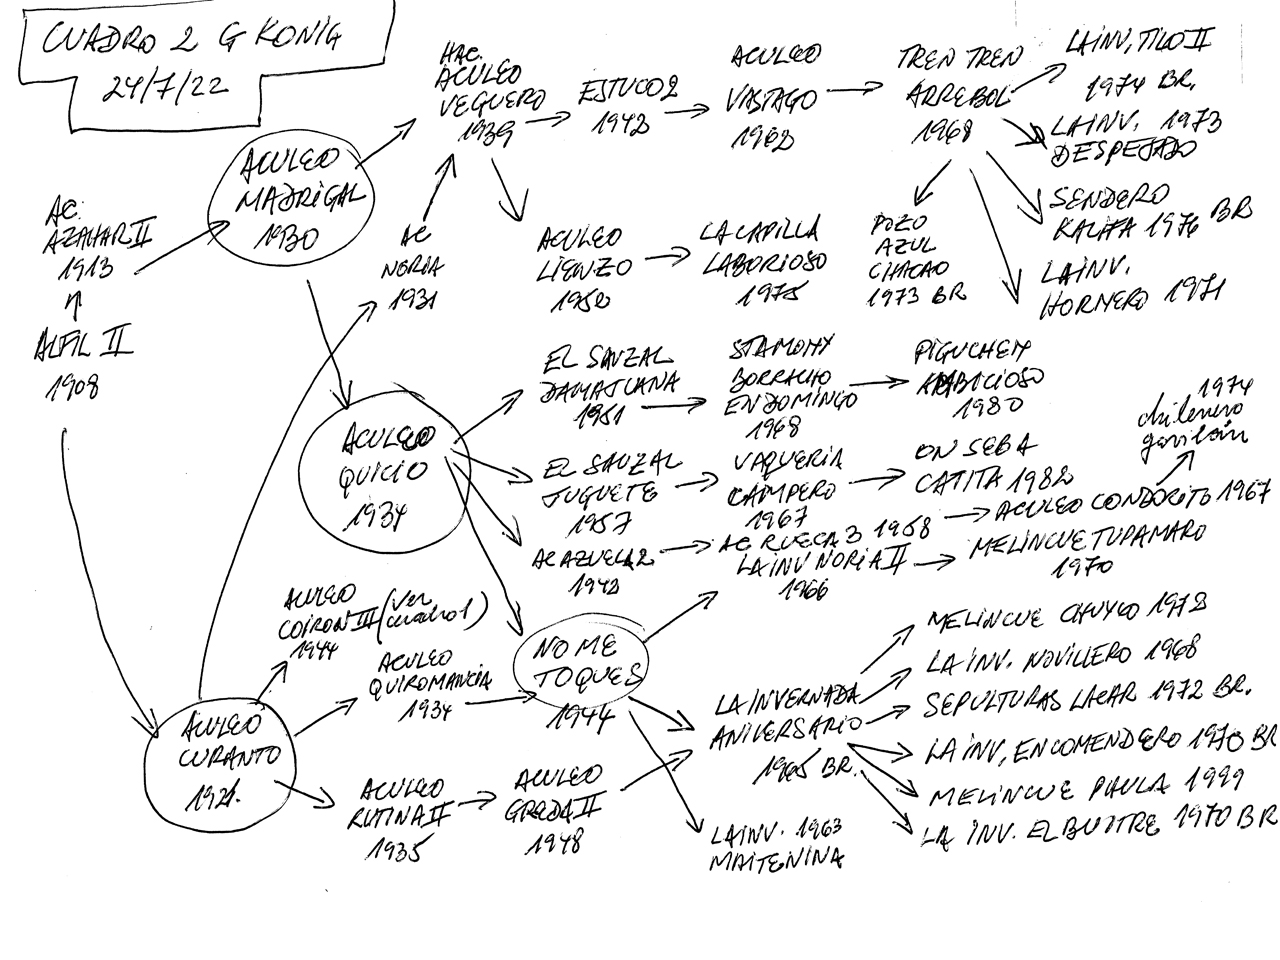 CUADRO 2 G KONIG
24/7/22
AC.
AZAHAR II
1913
ALFIL II
1908
ACULEO
MADRIGAL
1930
HAC.
ACULEO
VEGUERO
1939
ESTUCO 2
1942
ACULEO
VASTAGO
1962
TREN TREN
ARREBOL
1968
LA INV, TILO II
1974 BR.
LA INV. 1973
DESPEJADO
SENDERO
KALIFA 1976 BR
LA INV.
HORNERO 1971
POZO
AZUL
CHACAO
1973 BR
AC
NORIA
1931
ACULEO
LIENZO
1950
LA CAPILLA
LABORIOSO
1975
ACULEO
QUICIO
1934
EL SAUZAL
DAMAJUANA
1951
STA MONY
BORRACHO
EN DOMINGO
1968
PIGUCHEN
AMBICIOSO
1980
EL SAUZAL
JUGUETE
1957
VAQUERIA
CAMPERO
1967
ON SEBA
CATITA 1982
1974
chilenero
gavilán
AC AZUELA 2
1942
AC RUECA 3 1958
ACULEO CONDORITO 1967
LA INV NORIA II
1966
MELINCUE TUPAMARO
1970
ACULEO
COIRON III (ver
cuadro 1)
1944
ACULEO
QUIROMANCIA
1934
NO ME
TOQUES
1944
ACULEO
CURANTO
1921.
ACULEO
RUTINA II
1935
ACULEO
GREDA II
1948
LA INVERNADA
ANIVERSARIO
1965 BR.
LA INV. 1963
MAITENINA
MELINCUE CHUYCO 1972
LA INV. NOVILLERO 1968
SEPULTURAS LACAR 1972 BR.
LA INV, ENCOMENDERO 1970 BR
MELINCUE PAULA 1999
LA INV. EL BUITRE 1970 BR